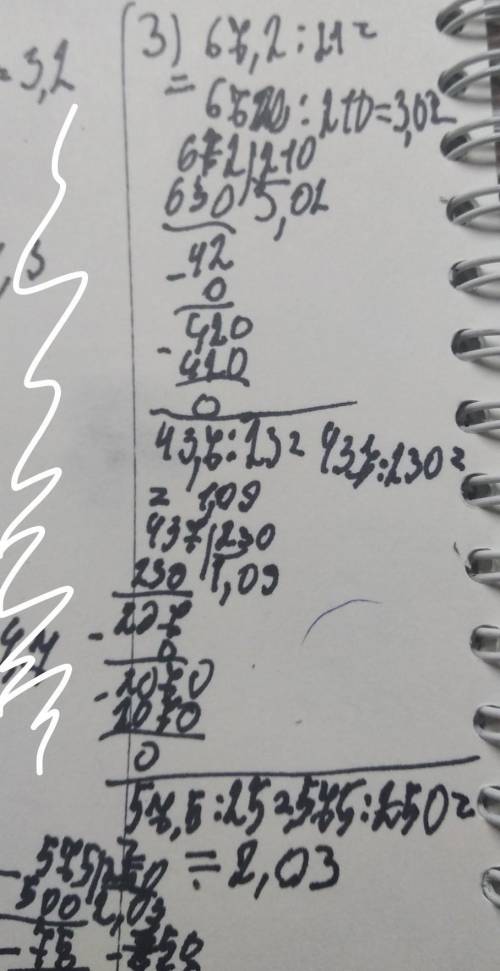 = 3,2
3) 67,2 : 21 =
= 672 : 210 = 3,02
672 210
630 5,02
- 42
0
420
- 420
0
43,7 : 23 = 437 : 230 =
= 1,09
437 230
230 1,09
- 207
0
- 2070
2070
0
57,5 : 25 = 575 : 250 =
= 2,03
- 575 250
500 2,03
- 75 - 750